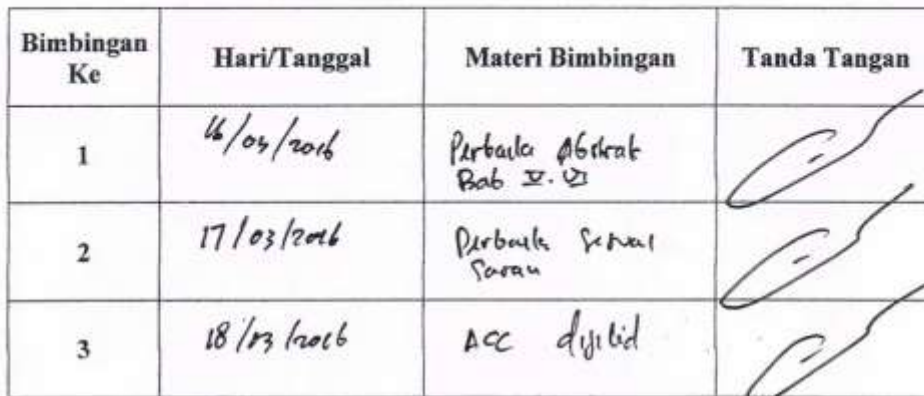 Bimbingan
Ke
Hari/Tanggal
Materi Bimbingan
Tanda Tangan
1
16/03/2016
Perbaiki Abstrak
Bab V. VI
2
17/03/2016
Perbaiki Sesuai
Saran
3
18/03/2016
ACC dijilid